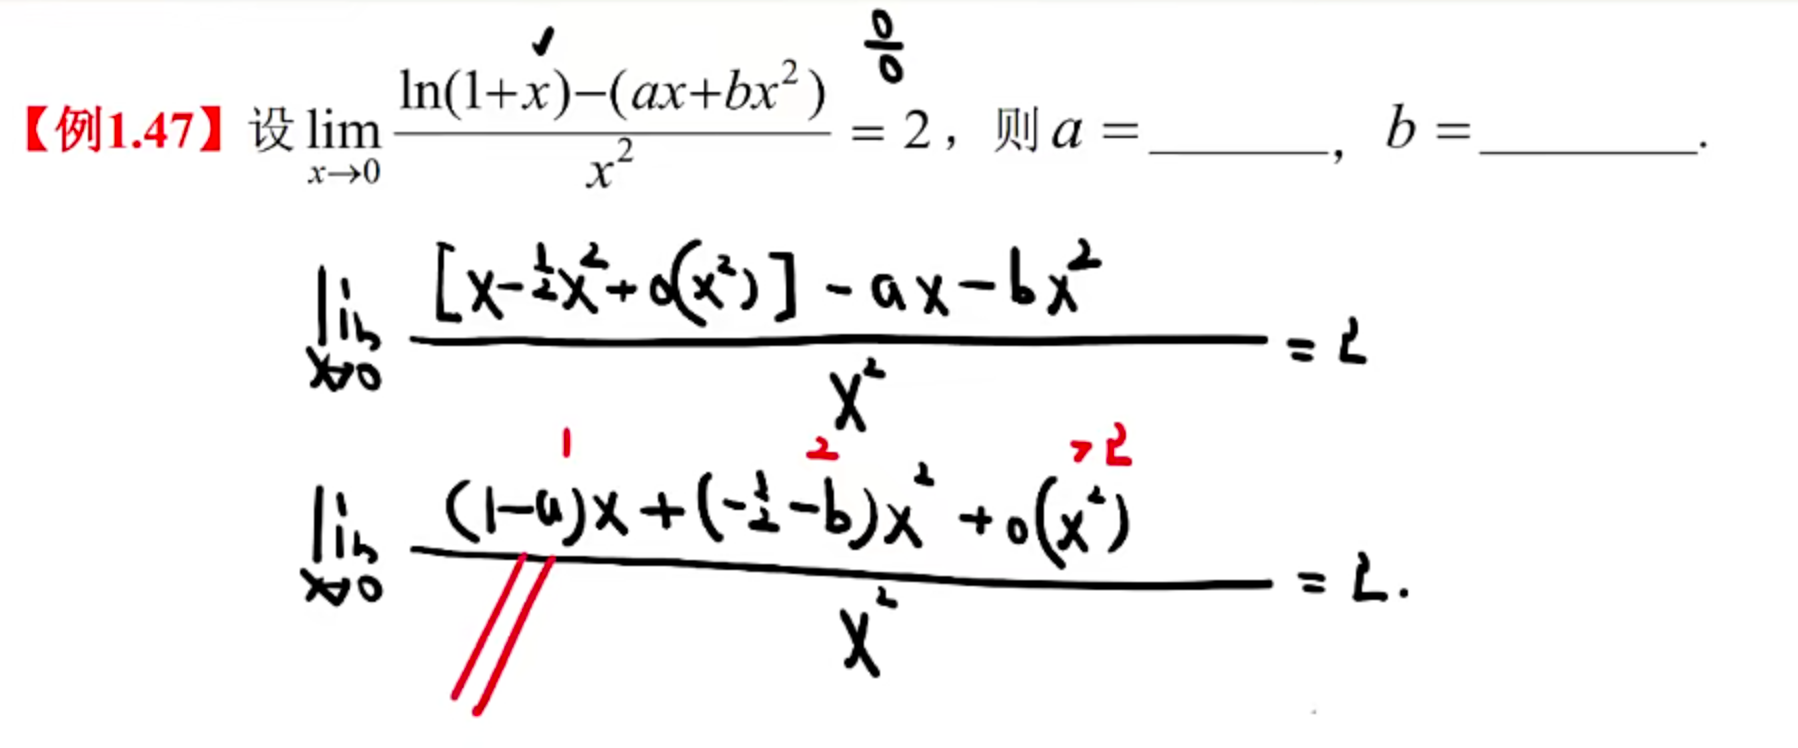 ✓ 0/0
【例1.47】设 lim_{x→0} (ln(1+x)−(ax+bx²))/x² = 2，则 a = ______， b = ______.
lim_{x→0} ([x-½x²+o(x²)] - ax - bx²)/x² = 2
1 2 >2
lim_{x→0} ((1-a)x + (-½-b)x² + o(x²))/x² = 2.